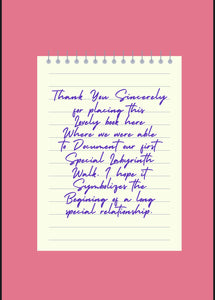 Thank You Sincerely
for placing this
Lovely book here
Where we were able
to Document our first
Special Labyrinth
Walk. I hope it
Symbolizes the
Begining of a long
special relationship.